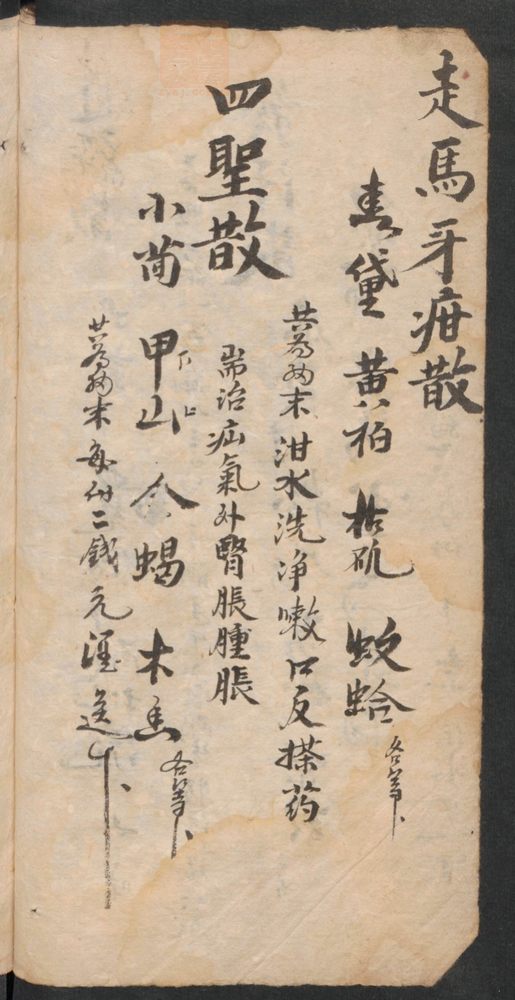 走馬牙疳散
青黛 黄柏 枯矾 蚊蛤 各等卜
共為細末泔水洗净嗽口反搽药
四聖散
耑治疝氣外腎脹腫脹
小茴 甲山 仝蝎 木香 各等卜
共為細末每付二錢元酒送下